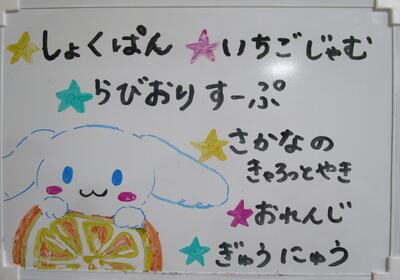 しょくぱん いちごじゃむ
らびおりすーぷ
さかなの
きゃろっとやき
おれんじ
ぎゅうにゅう